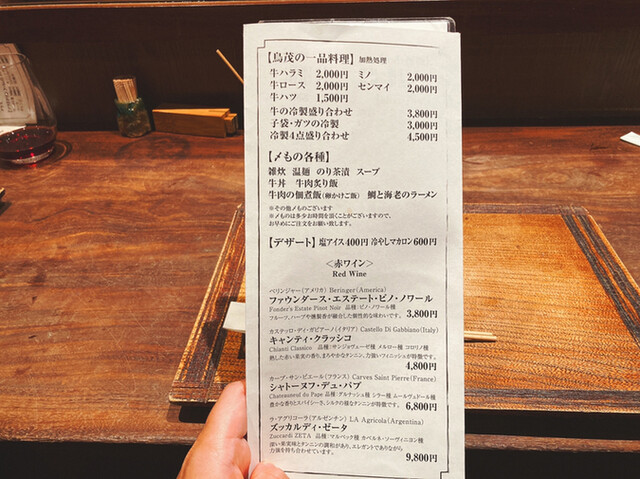 【鳥茂の一品料理】 加熱処理
牛ハラミ 2,000円 ミノ 2,000円
牛ロース 2,000円 センマイ 2,000円
牛ハツ 1,500円
牛の冷製盛り合わせ 3,800円
子袋・ガツの冷製 3,000円
冷製4点盛り合わせ 4,500円
【〆もの各種】
雑炊 温麺 のり茶漬 スープ
牛丼 牛肉炙り飯
牛肉の佃煮飯(卵かけご飯) 鯛と海老のラーメン
※その他〆ものございます
※〆ものは多少お時間を頂くことがございますので、
お早めにご注文をお願い致します。
【デザート】 塩アイス400円 冷やしマカロン600円
〈赤ワイン〉
Red Wine
ベリンジャー(アメリカ) Beringer(America)
ファウンダース・エステート・ピノ・ノワール
Fonder's Estate Pinot Noir 品種:ピノ・ノワール種
フルーツ、ハーブや燻製香が融合した個性的な味わいです。 3,800円
カステッロ・ディ・ガビアーノ(イタリア) Castello Di Gabbiano(Italy)
キャンティ・クラッシコ
Chianti Classico 品種:サンジョヴェーゼ種 メルロー種 コロリノ種
熟した赤い果実の香り、まろやかなタンニン、力強いフィニッシュが特徴です。
4,800円
カーブ・サン・ピエール(フランス) Carves Saint Pierre(France)
シャトーヌフ・デュ・パプ
Chateauneuf du Pape 品種:グルナッシュ種 シラー種 ムールヴェドル種
豊かな香りとスパイシーさ、シルクの様なタンニンが特徴です。 6,800円
ラ・アグリコーラ(アルゼンチン) LA Agricola(Argentina)
ズッカルディ・ゼータ
Zuccardi ZETA 品種:マルベック種 カベルネ・ソーヴィニヨン種
深い果実味とタンニンの調和があり、エレガントでありながら
力強を持ち合わせています。 9,800円